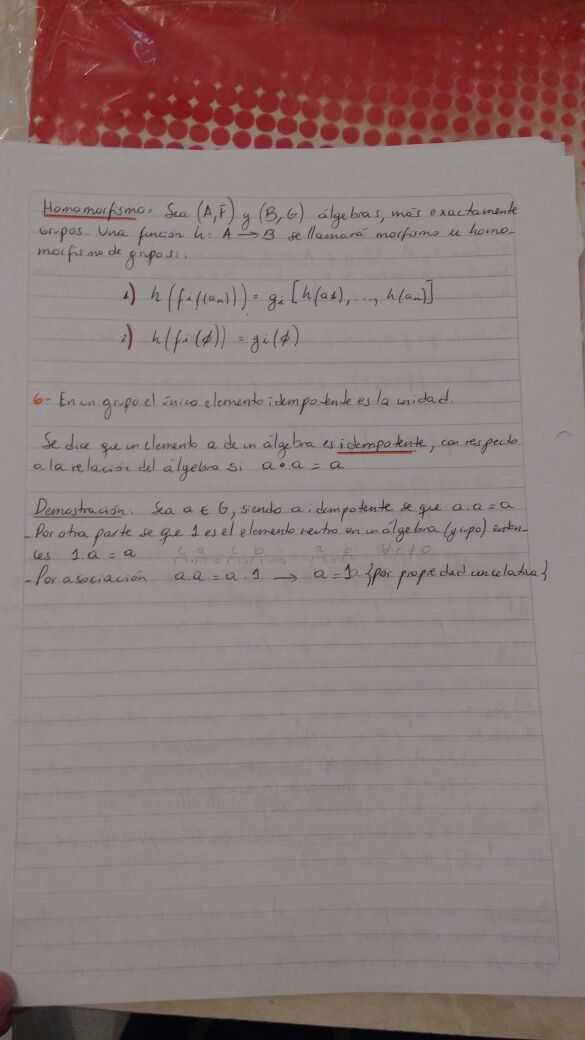 Homomorfismo: Sea (A,F) y (B,G) álgebras, más exactamente
Grupos. Una función h: A → B se llamará morfismo u homo-
morfismo de grupos:.
1) h(fi((an))) = gi[h(a1),..., h(an)]
2) h(fi(ϕ)) = gi(ϕ)
6- En un grupo el único elemento idempotente es la unidad.
Se dice que un elemento a de un álgebra es idempotente, con respecto
a la relación del álgebra si a • a = a
Demostración: Sea a ∈ G, siendo a idempotente se que a.a = a
- Por otra parte se que 1 es el elemento neutro en un álgebra (grupo) enton-
ces 1.a = a
- Por asociación a.a = a.1 → a = 1 {por propiedad cancelativa}